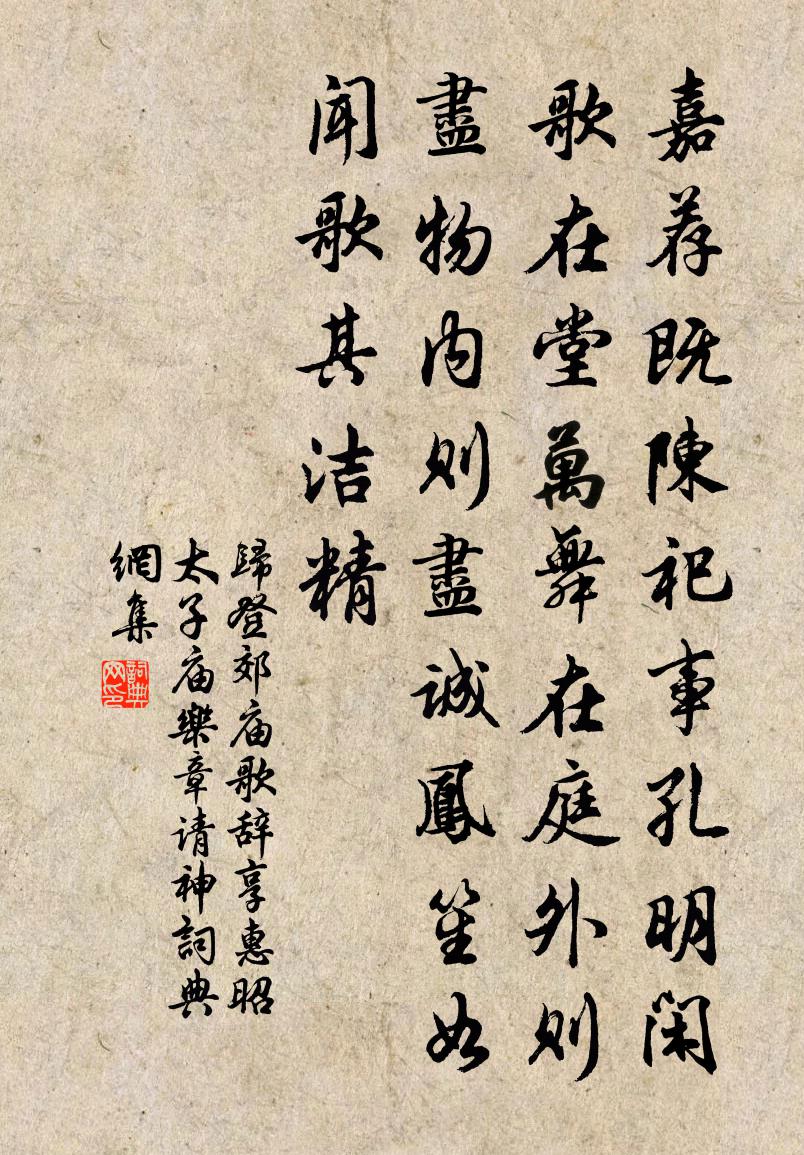 嘉荐既陳祀事孔明闲
歌在堂萬舞在庭外则
盡物内则盡诚鳳笙如
闻歌其洁精
歸登郊庙歌辞享惠昭
太子庙樂章请神詞典
網集
詞典网印